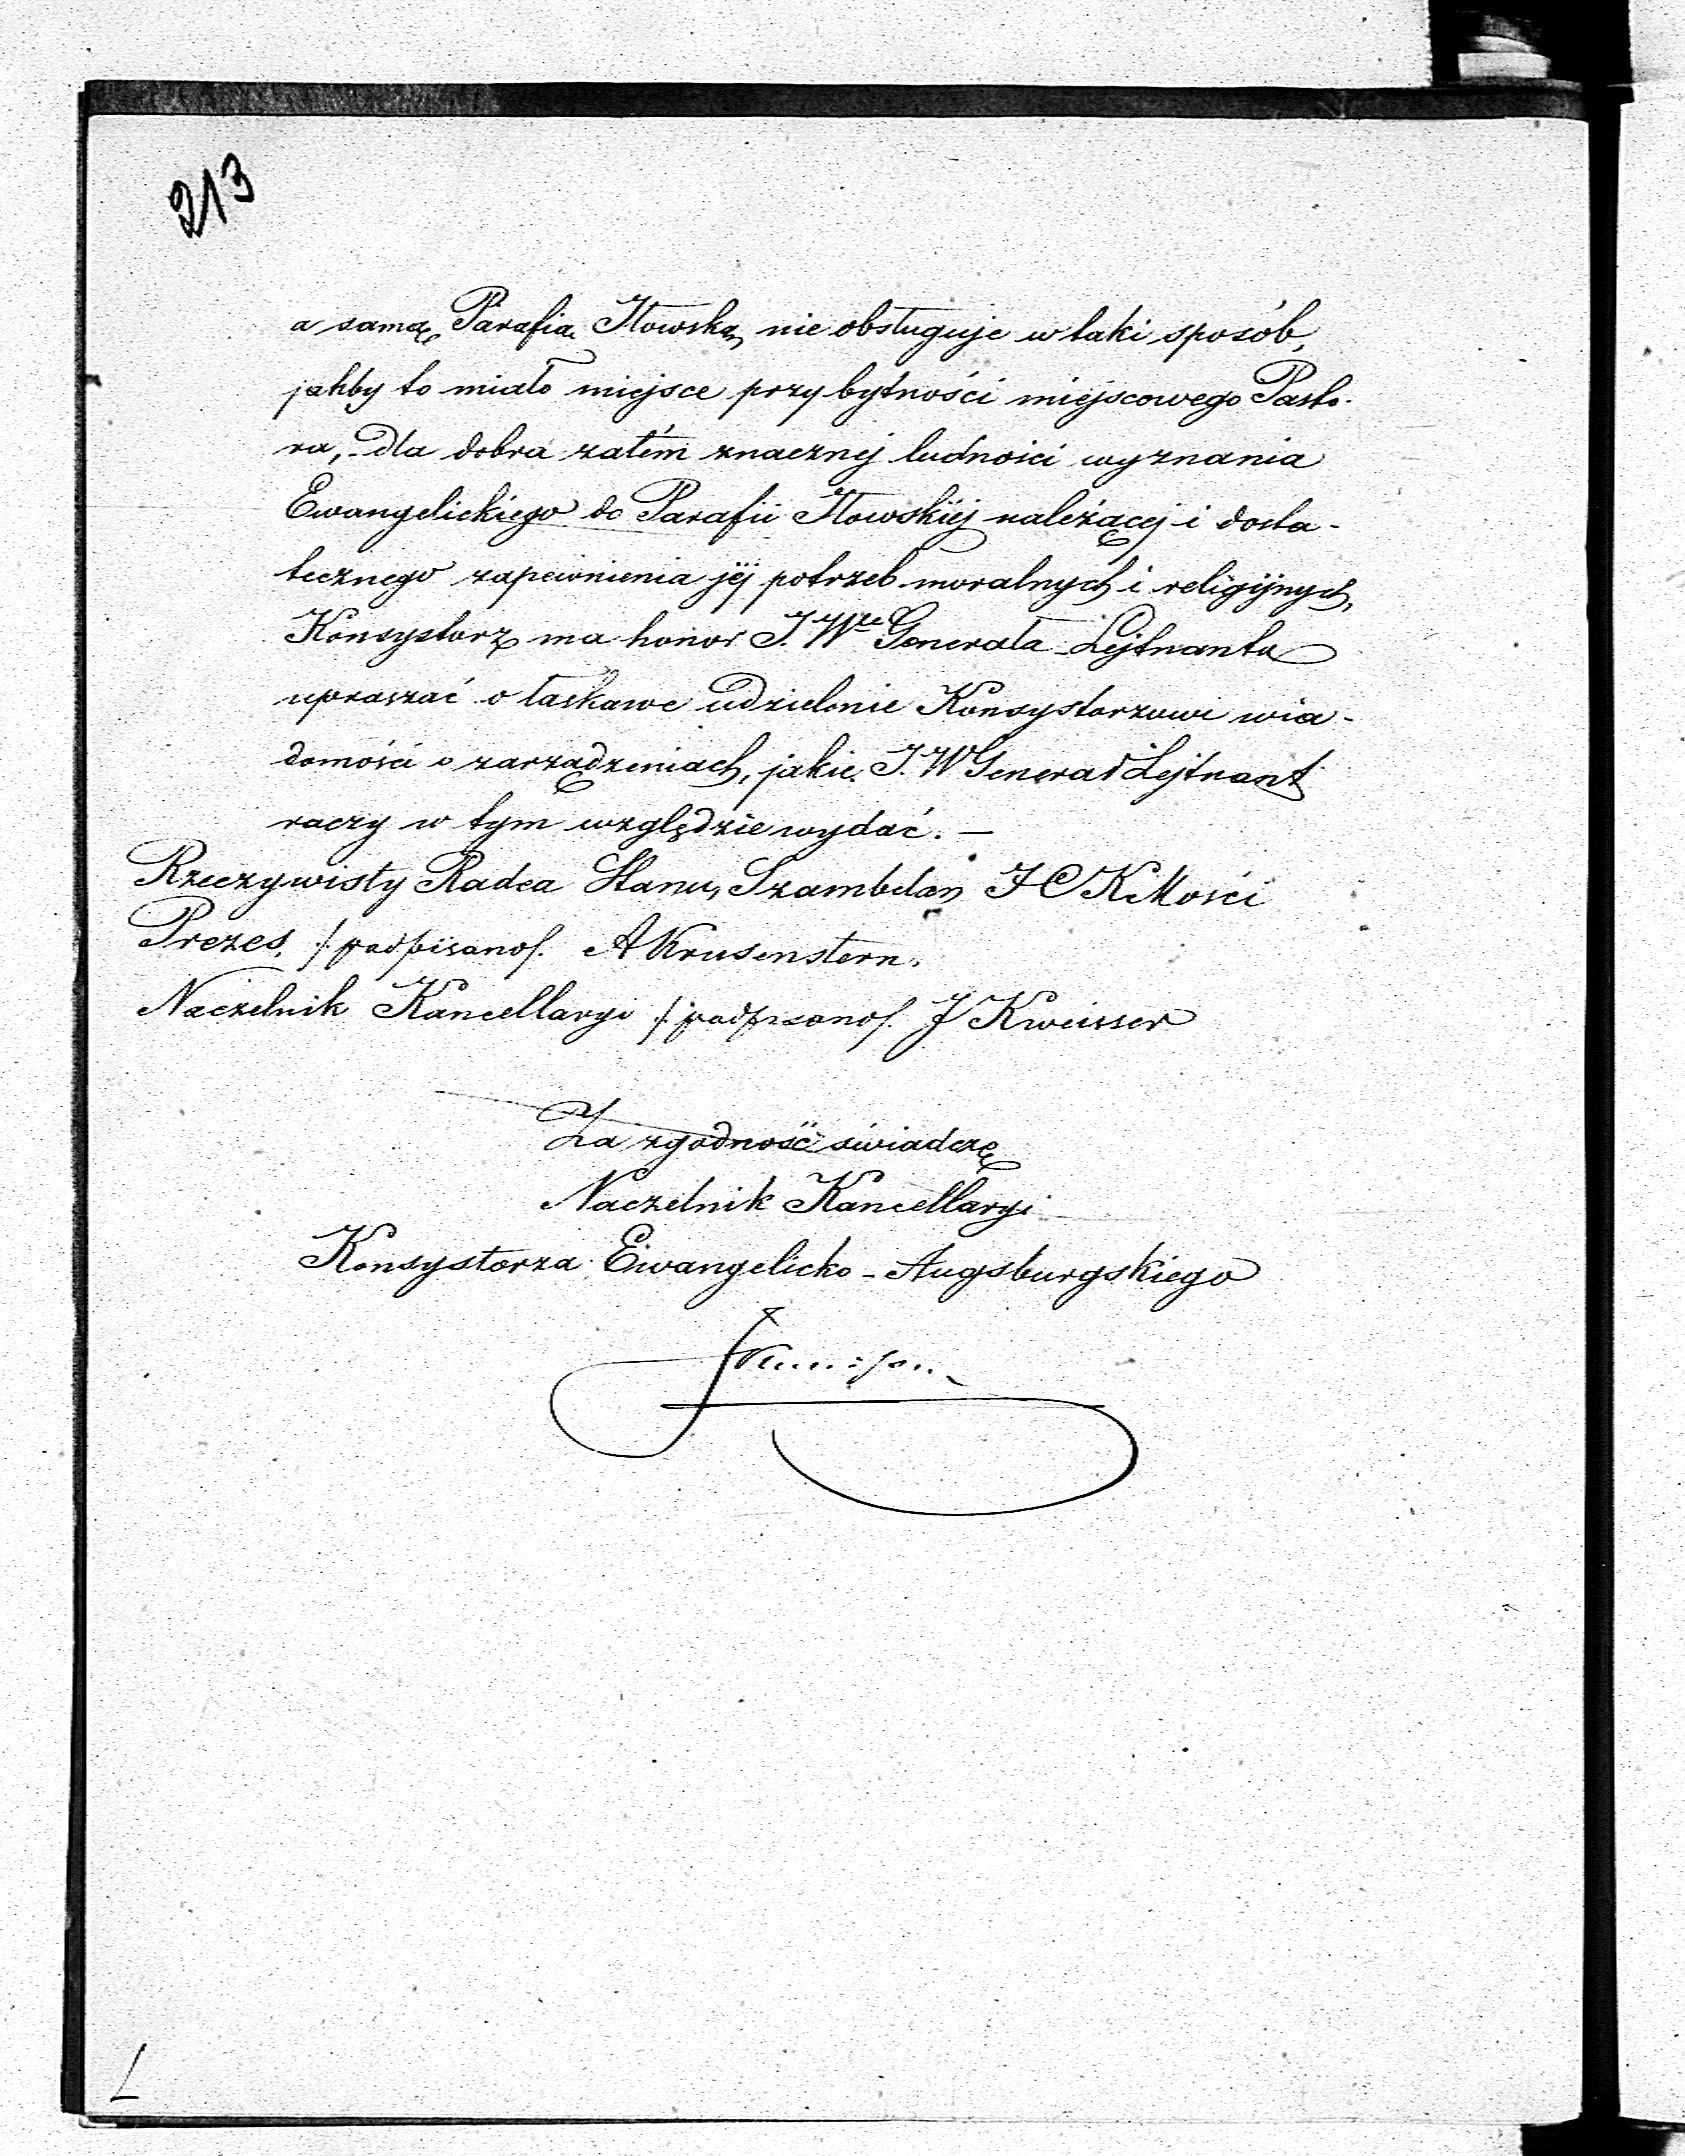 213
a samą Parafią Iłowską nie obsługuje w taki sposób,
jakby to miało miejsce przy bytności miejscowego Pasto-
ra, - dla dobra zatém znacznéj ludności wyznania
Ewangelickiego do Parafii Iłowskiéj należącej i dosta-
tecznego zapewnienia jéj potrzeb moralnych i religijnych,
Konsystorz ma honor J. Wgo Generała Lejtnanta
upraszać o łaskawe udzielenie Konsystorzowi wia-
domości o zarządzeniach, jakie J. W Generał Lejtnant
raczy w tym względzie wydać. —
Rzeczywisty Radca Stanu, Szambelan JCKMości
Prezes, /:podpisano/. A Krusenstern.
Naczelnik Kancellaryi /:podpisano/. J Kweisser
Za zgodność świadczę
Naczelnik Kancellaryi
Konsystorza Ewangelicko-Augsburgskiego